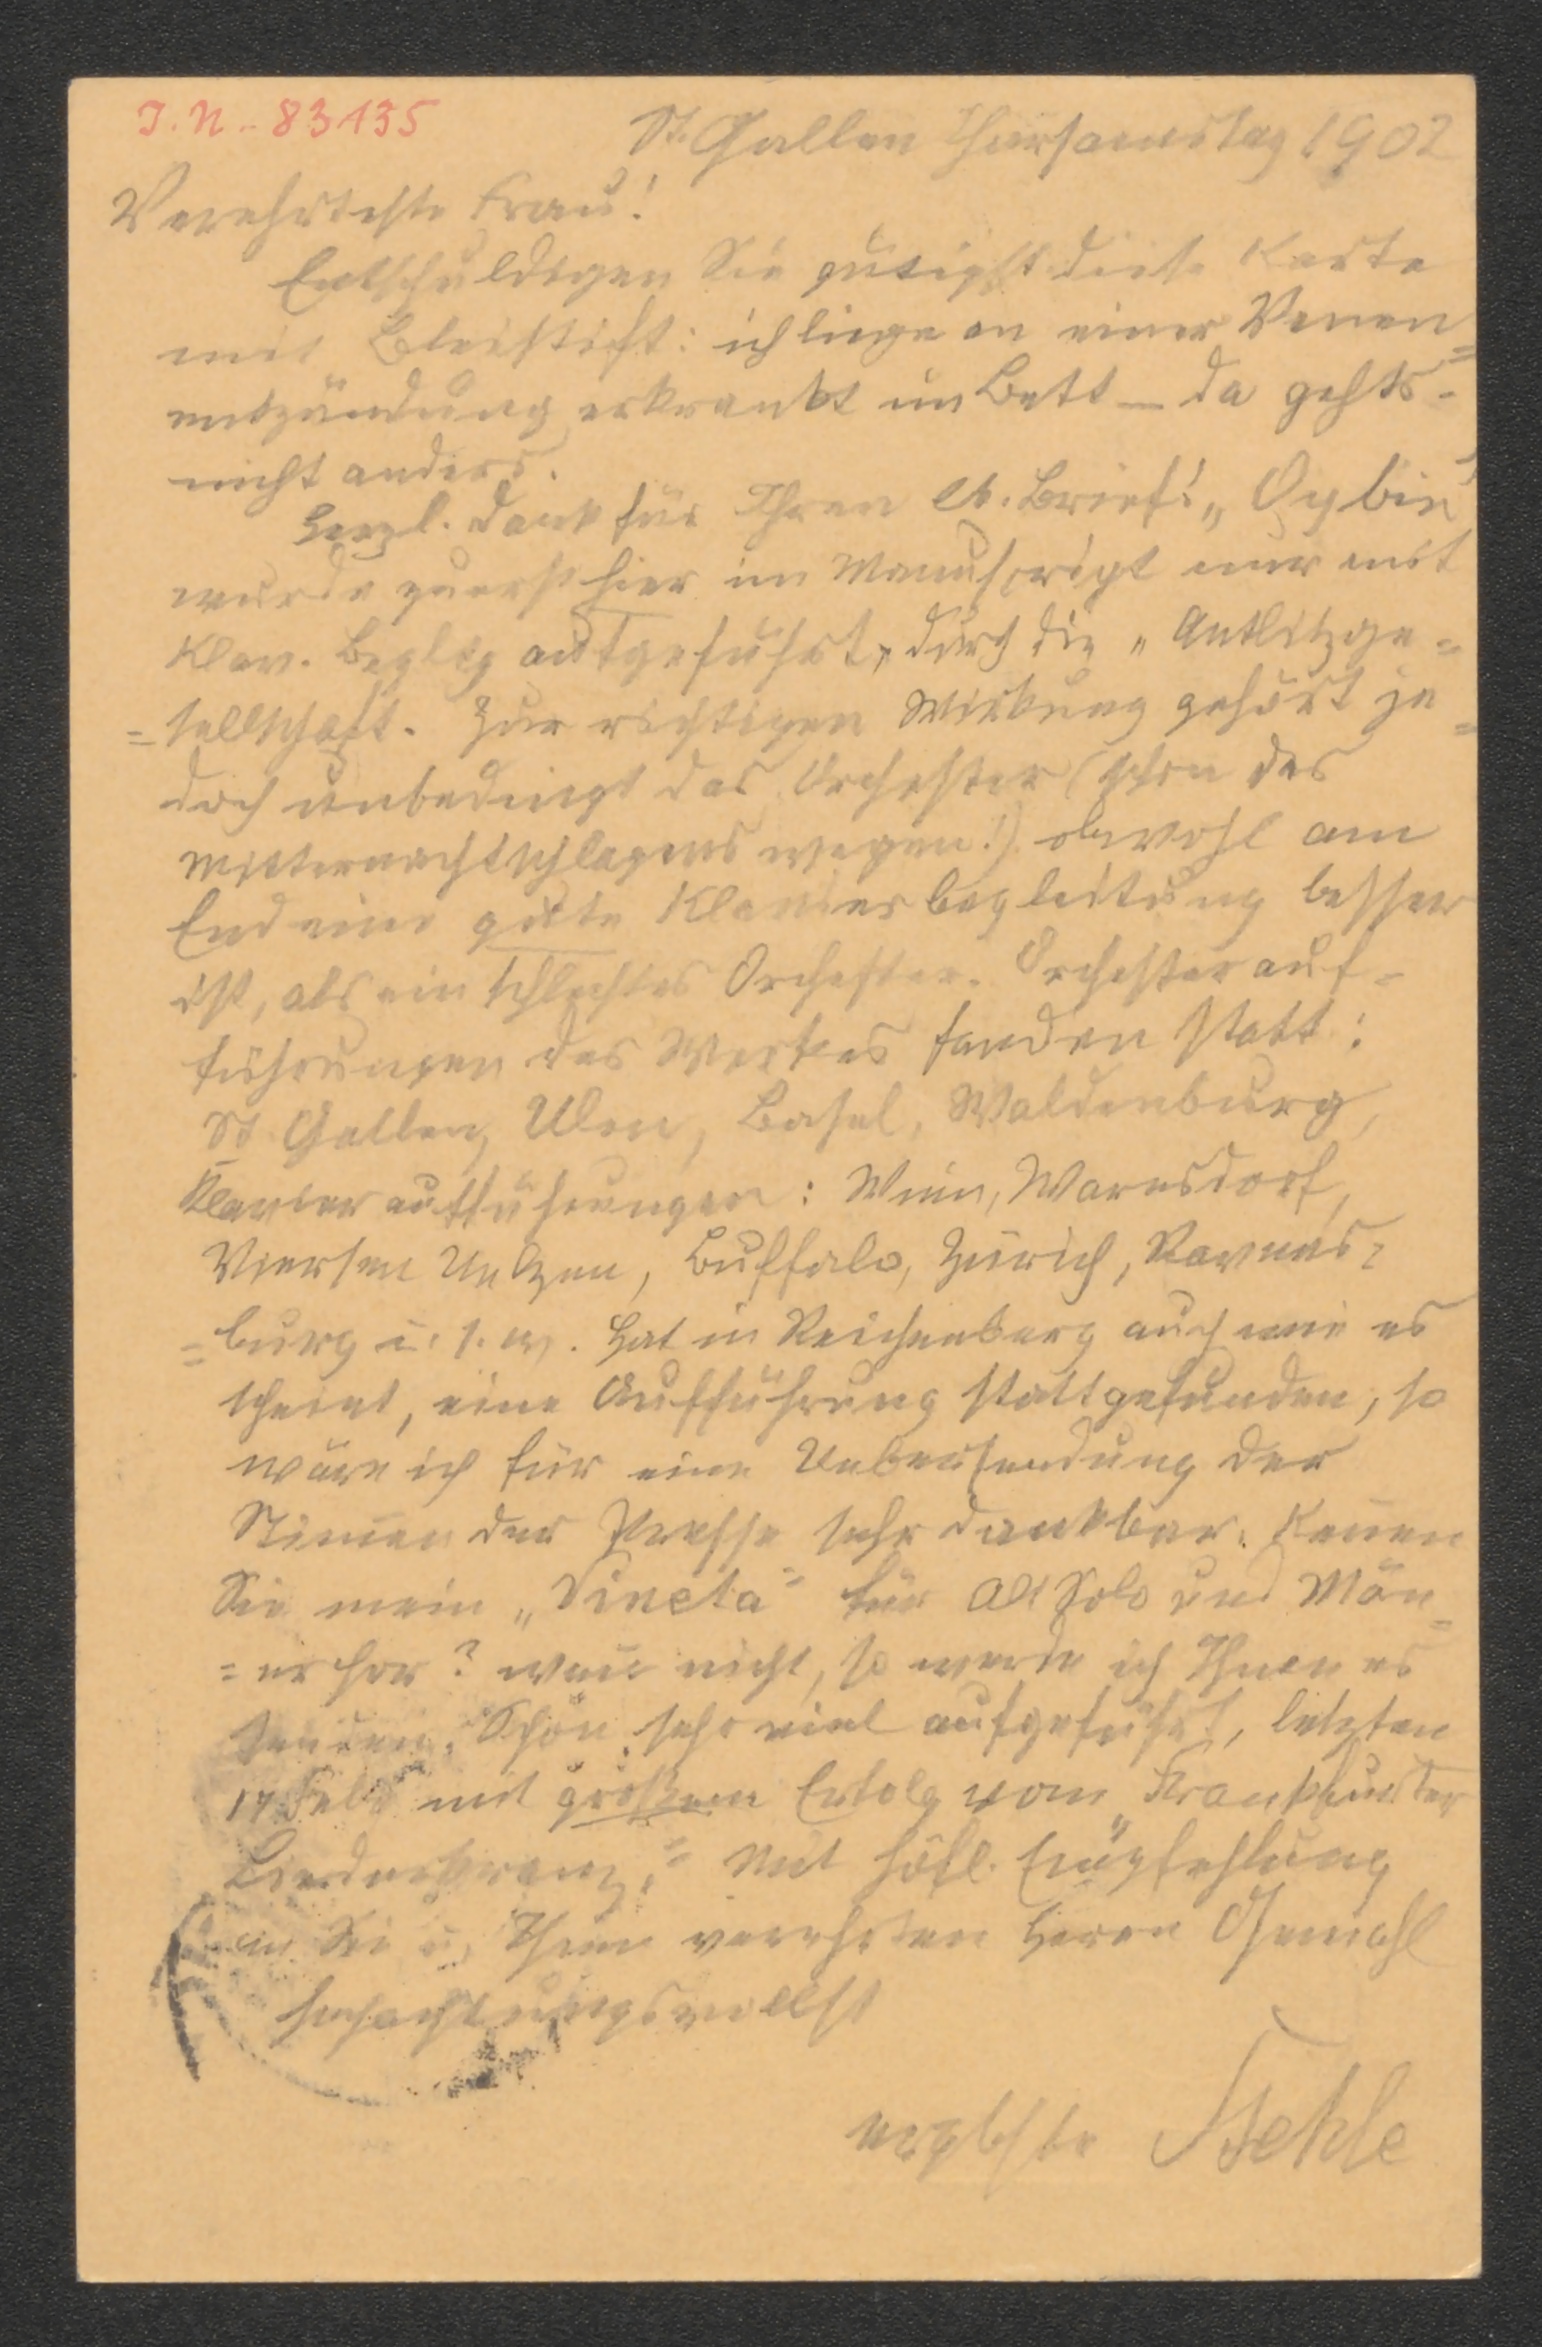 I.N. 83135
St. Gallen Charsamstag 1902
Verehrteste Frau!
Entschuldigen Sie gütigst diese Karte
mit Bleistift: ich liege an einer Venen=
entzündung erkrankt im Bett – da gehts
nicht anders.
Herzl. Dank für Ihren lb. Brief! „Oybin"
wurde zuerst hier im Manuscript nur mit
Klav. Begltg aufgeführt, durch die „Antlitzge=
=sellschaft. Zur richtigen Wirkung gehört je=
doch unbedingt das Orchester (schon des
Mitternachtschlagens wegen!) obwohl am
End eine gute Klavierbegleitung besser
ist, als ein schlechtes Orchester. Orchesterauf-
führungen des Werkes fanden statt:
St Gallen, Ulm, Basel, Waldenburg,
Klavieraufführungen: Wien, Warnsdorf,
Viersen Uelzen, Buffalo, Zürich, Ravens=
=burg u. s. w. Hat in Reichenberg auch wie es
scheint, eine Aufführung stattgefunden, so
wäre ich für eine Uebersendung der
Stimen der Presse sehr dankbar. Kenen
Sie mein „Vineta" für Alt Solo und Män=
=erchor? wen nicht, so werde ich Ihnen es
senden. Schon sehr viel aufgeführt, letzten
17 Feb. mit großem Erfolg vom „Frankfurter
Liederkranz." Mit höfl. Empfehlung
an Sie u. Ihren verehrten Herrn Gemahl
hochachtungsvollst
ergebste Stehle